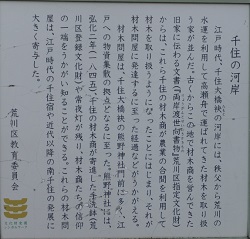 千住の河岸
江戸時代、千住大橋袂の河岸には、秩父から荒川の
水運を利用して高瀬舟で運ばれてきた材木を取り扱
う家が並んだ。古くからこの地で材木商を営んできた
旧家に伝わる文書(両岸渡世向書物 荒川区指定文化財)
からは、これら千住の材木商が農業の合間を利用して
材木を取り扱うようになったことにはじまり、それが
材木問屋に発達するに至った経過などがうかがえる。
材木問屋は、千住大橋袂の熊野神社門前に多く、江
戸への物資集散の拠点となるに至った。熊野神社には、
弘化二年(一八四五)千住の材木商が寄進した手洗鉢(荒
川区登録文化財)や常夜灯が残り、材木商たちの信仰
の一端をうかがい知ることができる。これらの材木問
屋は、江戸時代の千住宿や近代以降の南千住の発展に
大きく寄与した。
荒川区教育委員会